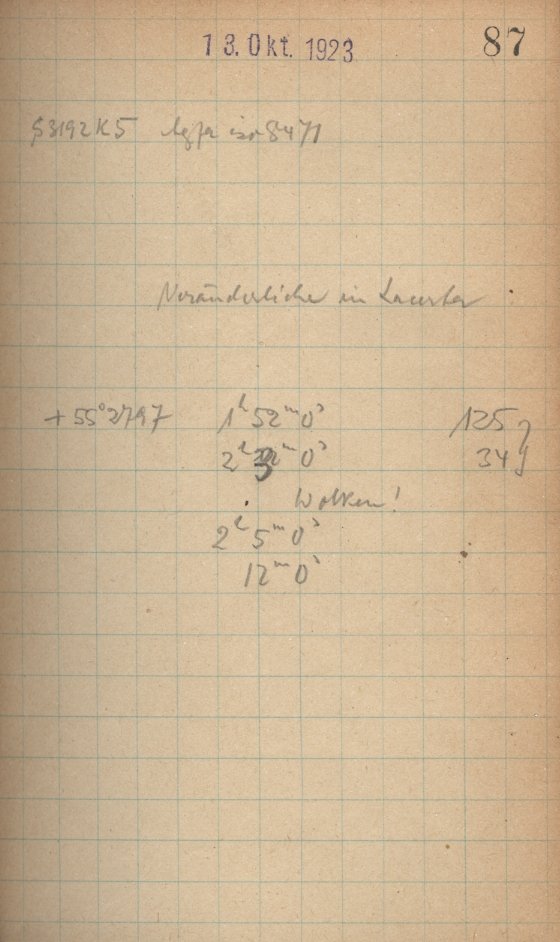 13. Okt. 1923
87
S3192K5 8471
Veränderliche in Lacerta
+55°2797 1h 52m 0s 125
2h 3m 0s 34
Wolken!
2h 5m 0s
12m 0s